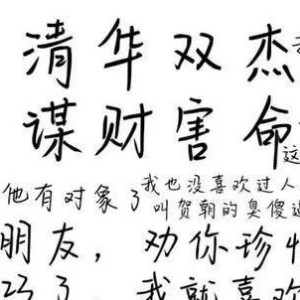 清华双杰
谋财害命
这
我也没喜欢过人
他有对象了
叫贺朝的臭傻逼
朋友，劝你珍惜
我就喜欢